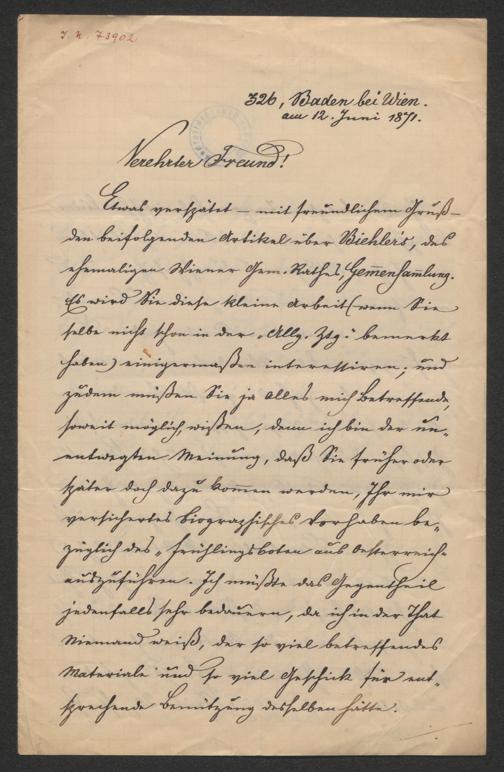 I. N. 73902
326, Baden bei Wien.
am 12. Juni 1871.
Verehrter Freund!
Etwas verspätet – mit freundlichem Gruß –
den beifolgenden Artikel über Biehler's, des
ehemaligen Wiener Gem. Rathes, Gemmensammlung.
Es wird Sie diese kleine Arbeit (wenn Sie
selbe nicht schon in der „Allg. Ztg." bemerkt
haben) einigermaßen interessiren; und
zudem müßen Sie ja alles mich Betreffende,
soweit möglich, wißen, denn ich bin der un-
entwegten Meinung, daß Sie früher oder
später doch dazu kommen werden, Ihr mir
versichertes biographisches Vorhaben be-
züglich des „Frühlingsboten aus Oesterreich"
auszuführen. Ich müßte das Gegentheil
jedenfalls sehr bedauern, da ich in der That
Niemand weiß, der so viel betreffendes
Materiale und so viel Geschick für ent-
sprechende Benützung desselben hätte.